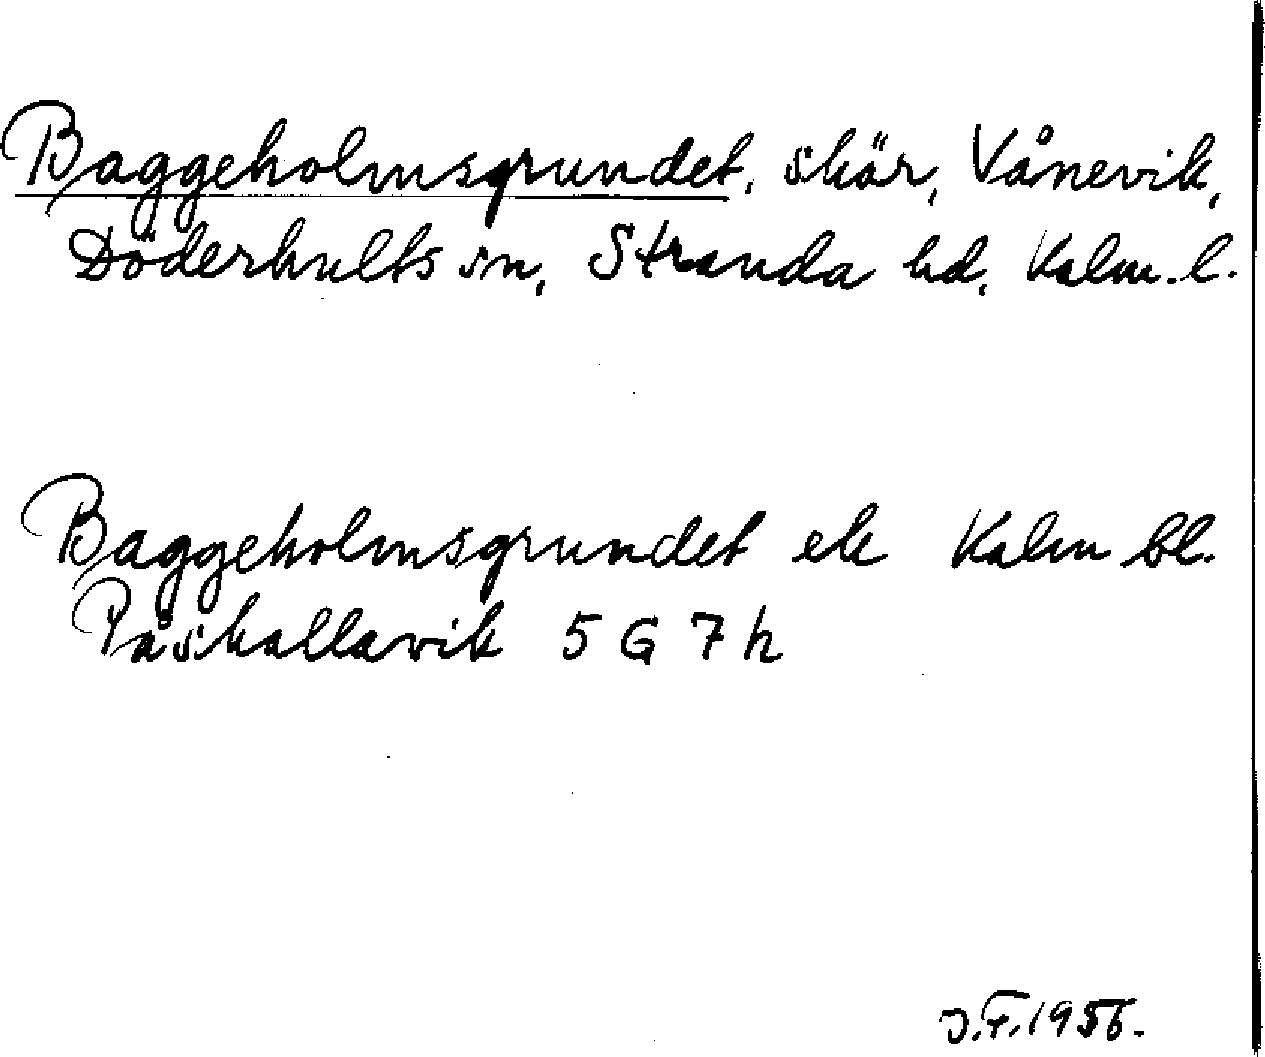 Baggeholmsgrundet, skär, Vånevik,
Döderhults sn, Stranda hd, Kalm. l.
Baggeholmsgrundet ek Kalm bl.
Påskallavik 5 G 7 h
J.F. 1956.